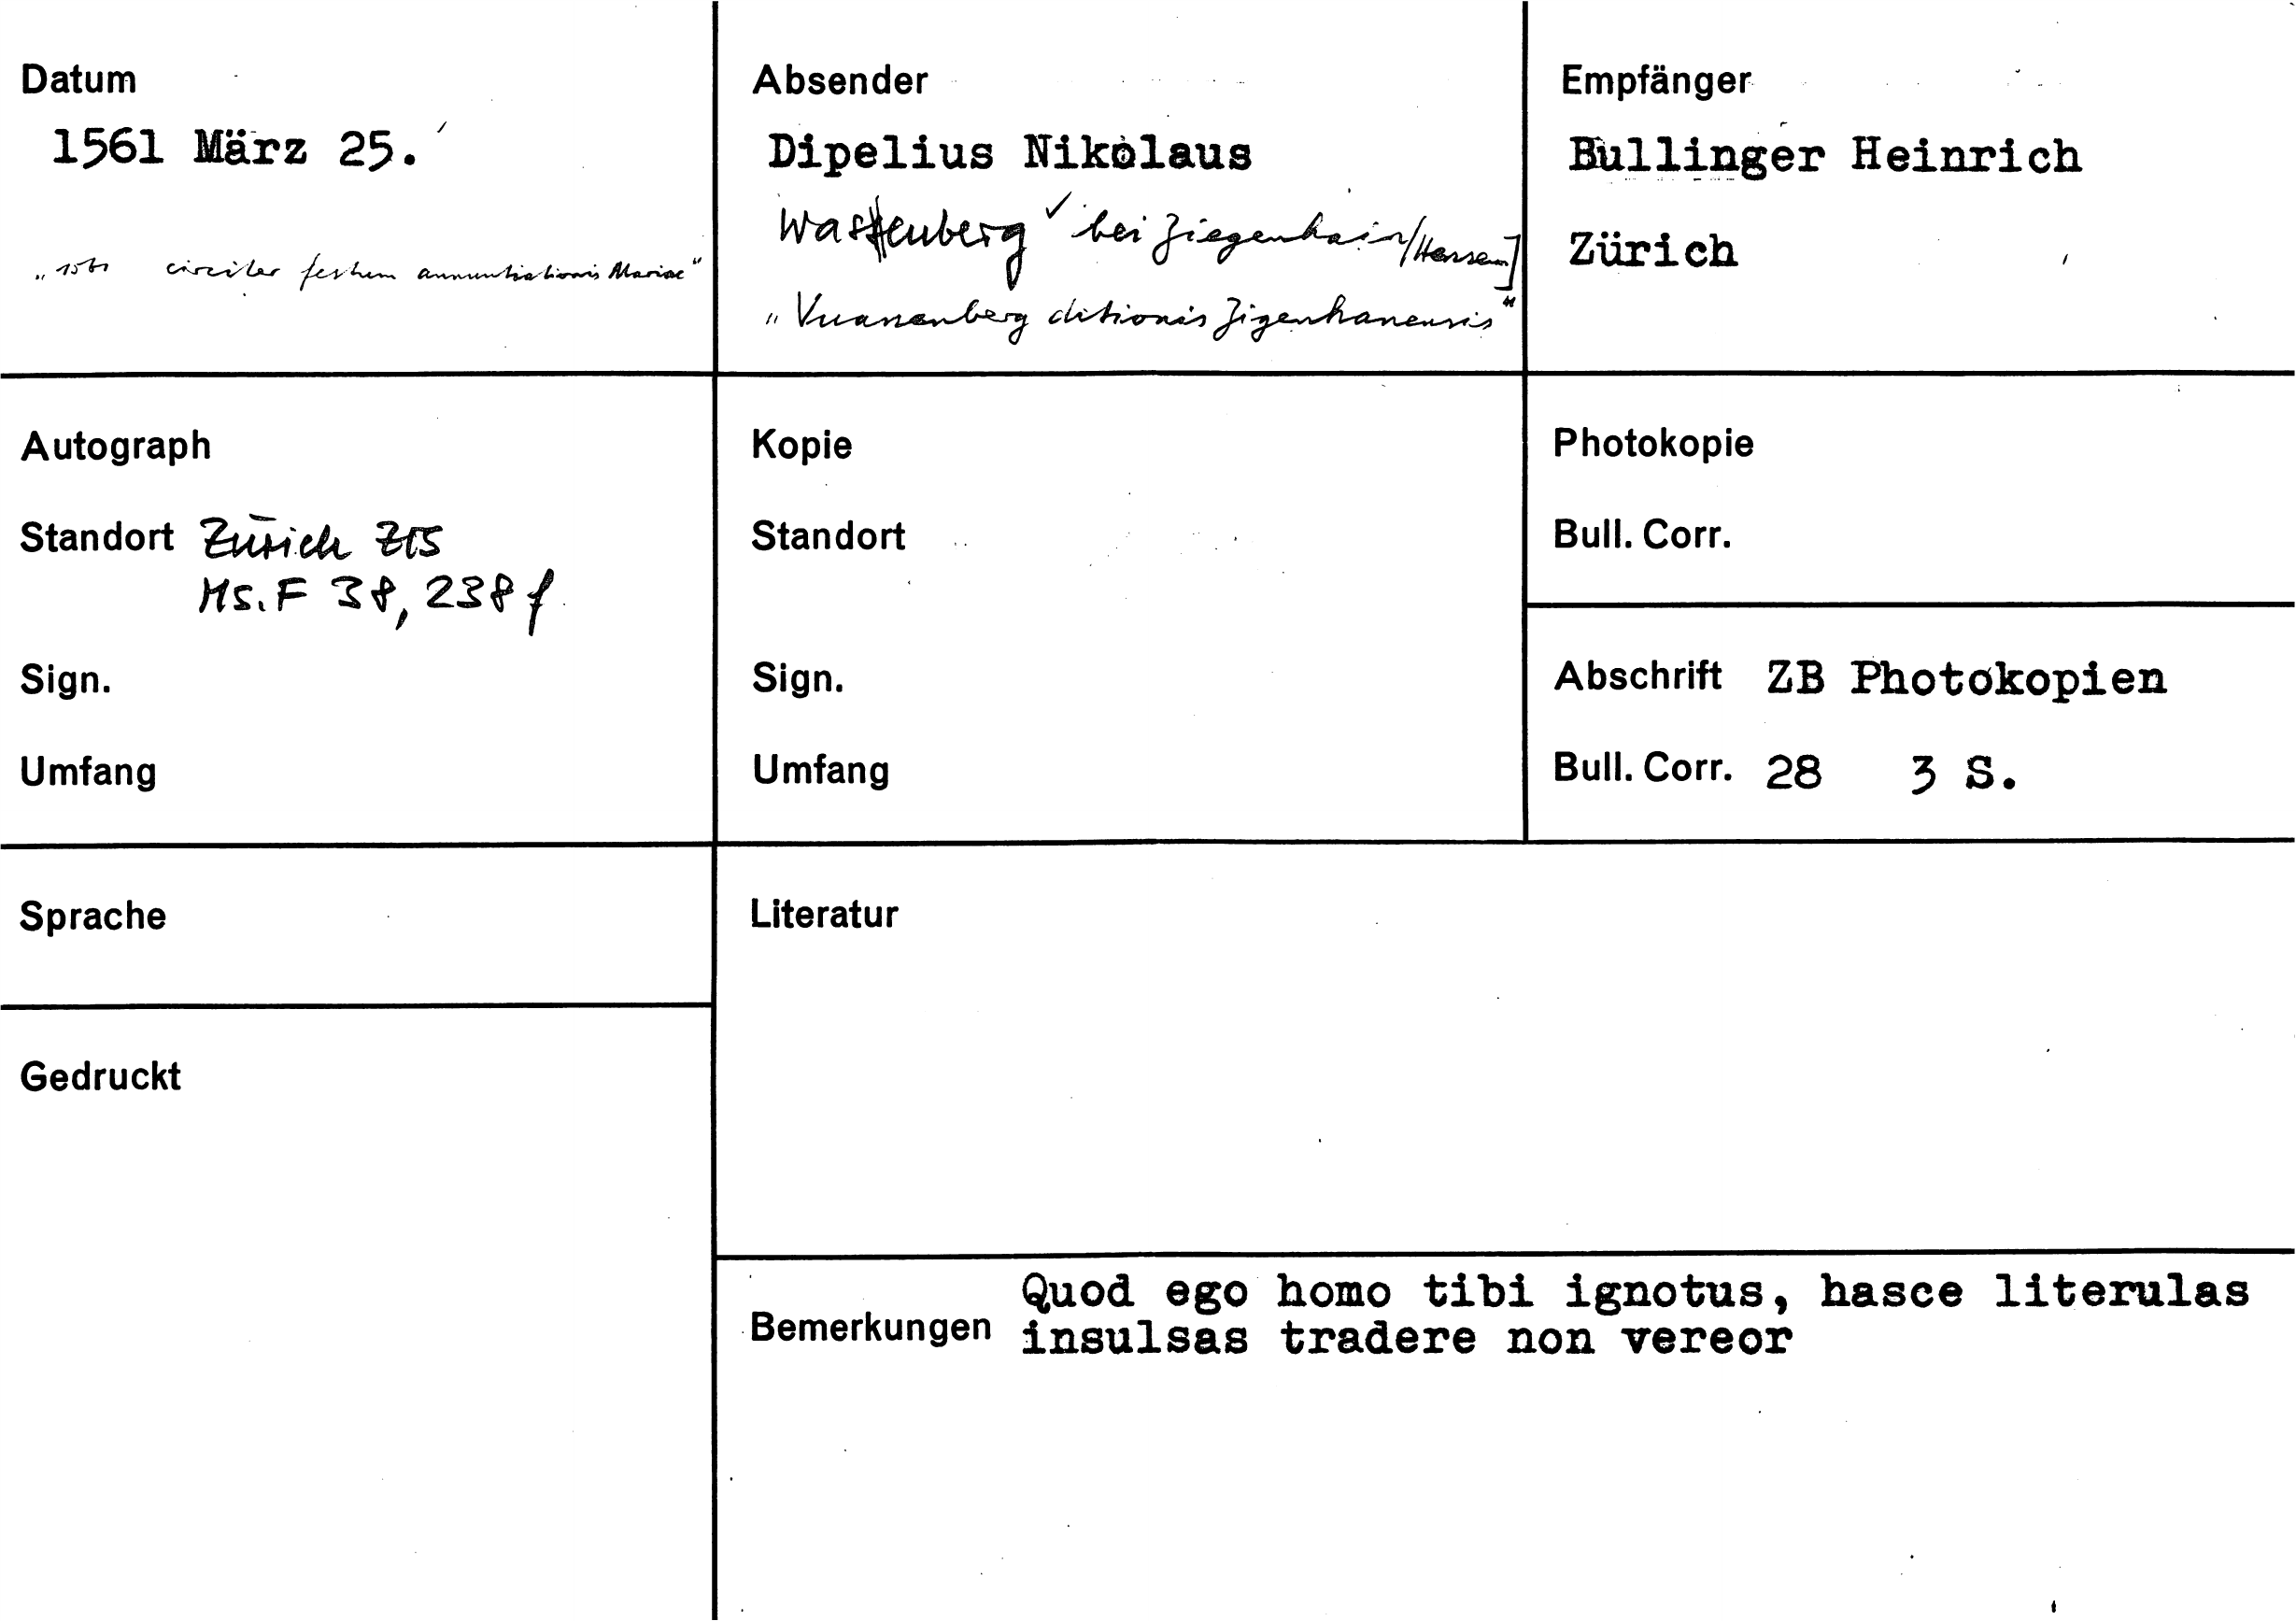 Datum
1561 März 25.
"1561 circiter festum annuntiationis Mariae"
Absender
Dipelius Nikolaus
bei Ziegenhain [Hessen]
ditionis Zigenhanensis"
Empfänger
Bullinger Heinrich
Zürich
Autograph
Standort Zürich ZB
Ms. F 38, 238 f
Sign.
Umfang
Kopie
Standort
Sign.
Umfang
Photokopie
Bull. Corr.
Abschrift ZB Photokopien
Bull. Corr. 28 3 S.
Sprache
Gedruckt
Literatur
Bemerkungen Quod ego homo tibi ignotus, hasce literulas
insulsas tradere non vereor